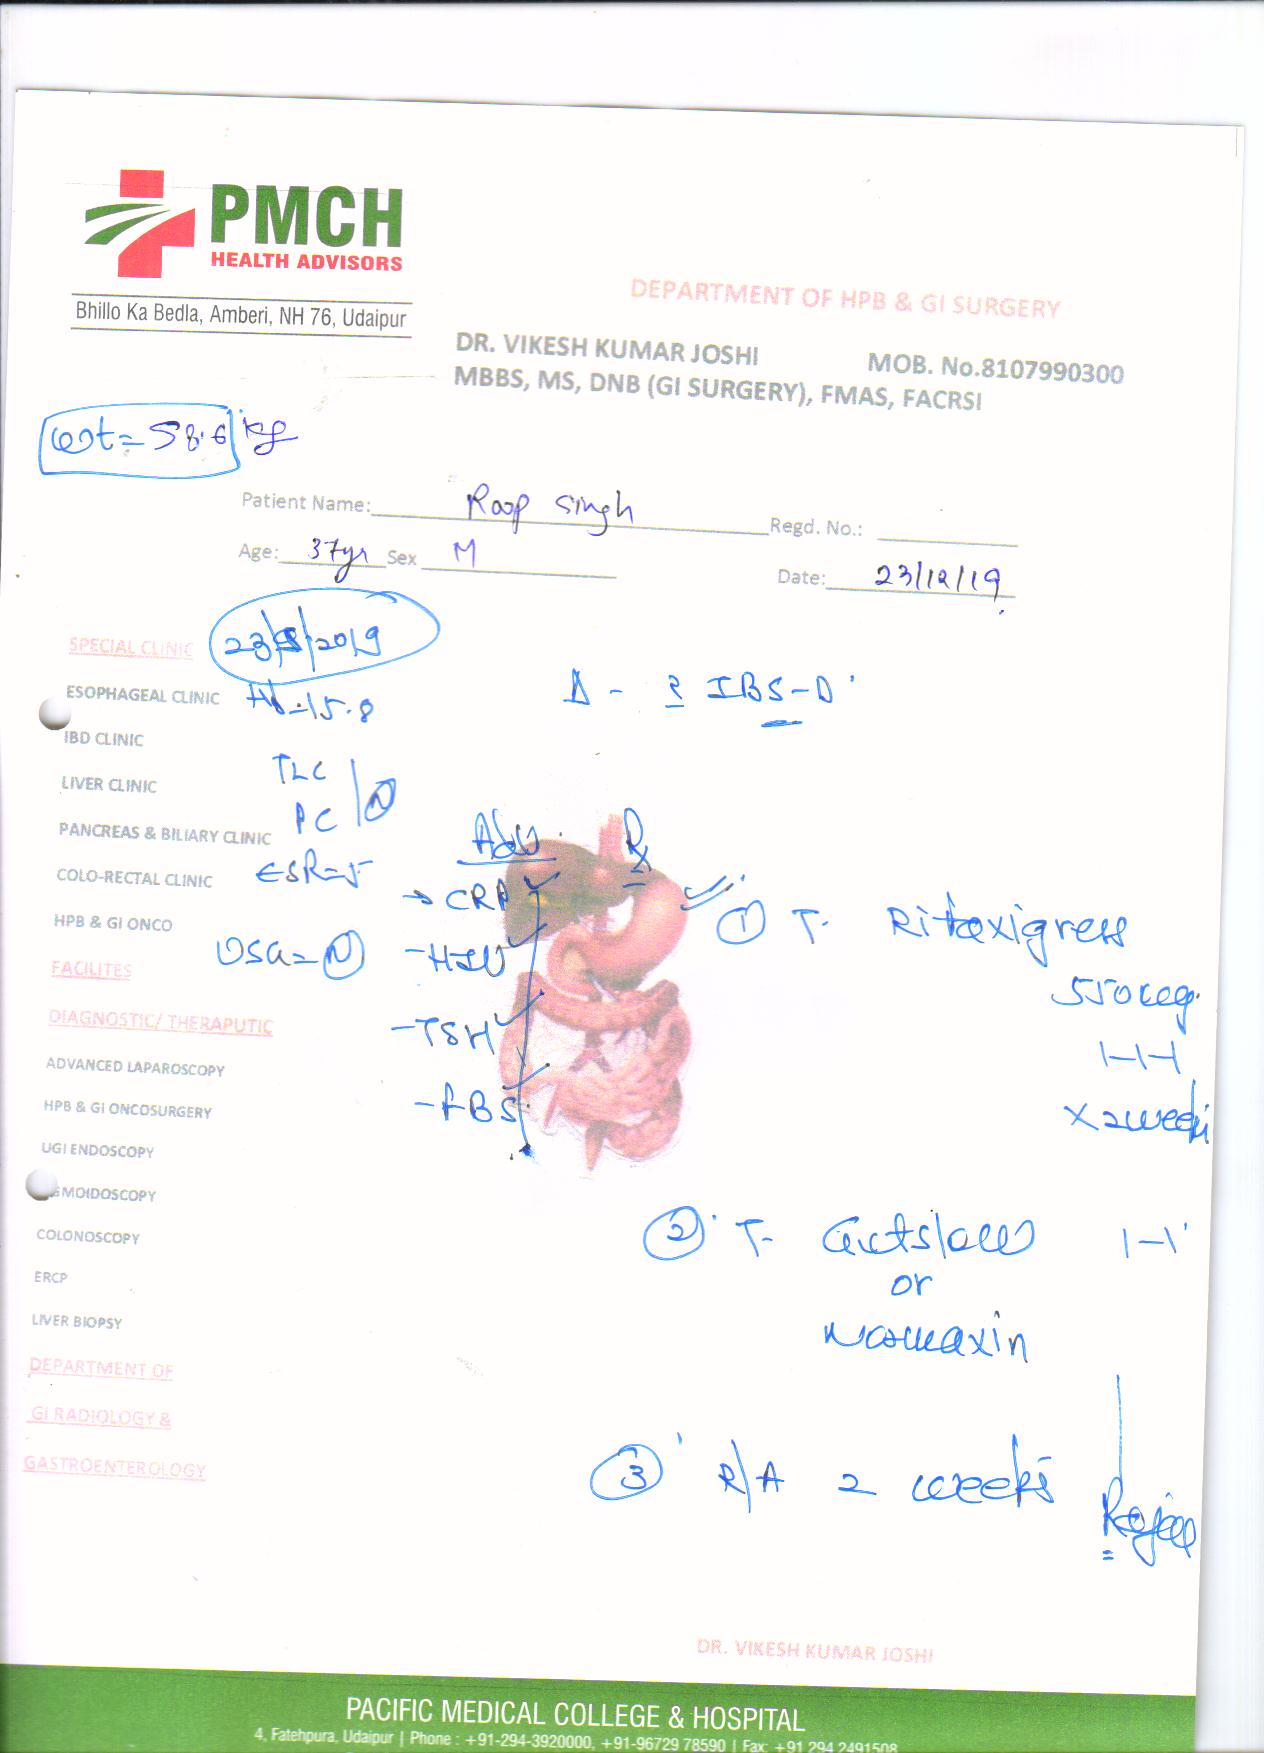 PMCH
HEALTH ADVISORS
Bhillo Ka Bedla, Amberi, NH 76, Udaipur
DEPARTMENT OF HPB & GI SURGERY
DR. VIKESH KUMAR JOSHI MOB. No.8107990300
MBBS, MS, DNB (GI SURGERY), FMAS, FACRSI
wt = 58.6 kg
Patient Name: Roop Singh Regd. No.:
Age: 37yr Sex M Date: 23/12/19
23/8/2019
Hb-15.8
Δ - ? IBS-D
TLC
PC
N
ESR=5
USG = N
SPECIAL CLINIC
ESOPHAGEAL CLINIC
IBD CLINIC
LIVER CLINIC
PANCREAS & BILIARY CLINIC
COLO-RECTAL CLINIC
HPB & GI ONCO
FACILITES
DIAGNOSTIC/ THERAPUTIC
ADVANCED LAPAROSCOPY
HPB & GI ONCOSURGERY
UGI ENDOSCOPY
GMOIDOSCOPY
COLONOSCOPY
ERCP
LIVER BIOPSY
DEPARTMENT OF
GI RADIOLOGY &
GASTROENTEROLOGY
Adv
→ CRP
- HIV
- TSH
- FBS
Rx
① T. 
550
1-1-1
X 2 weeks
② T. 1-1
or
Normaxin
③ R/A 2 weeks
DR. VIKESH KUMAR JOSHI
PACIFIC MEDICAL COLLEGE & HOSPITAL
4, Fatehpura, Udaipur | Phone : +91-294-3920000, +91-96729 78590 | Fax: +91 294 2491508